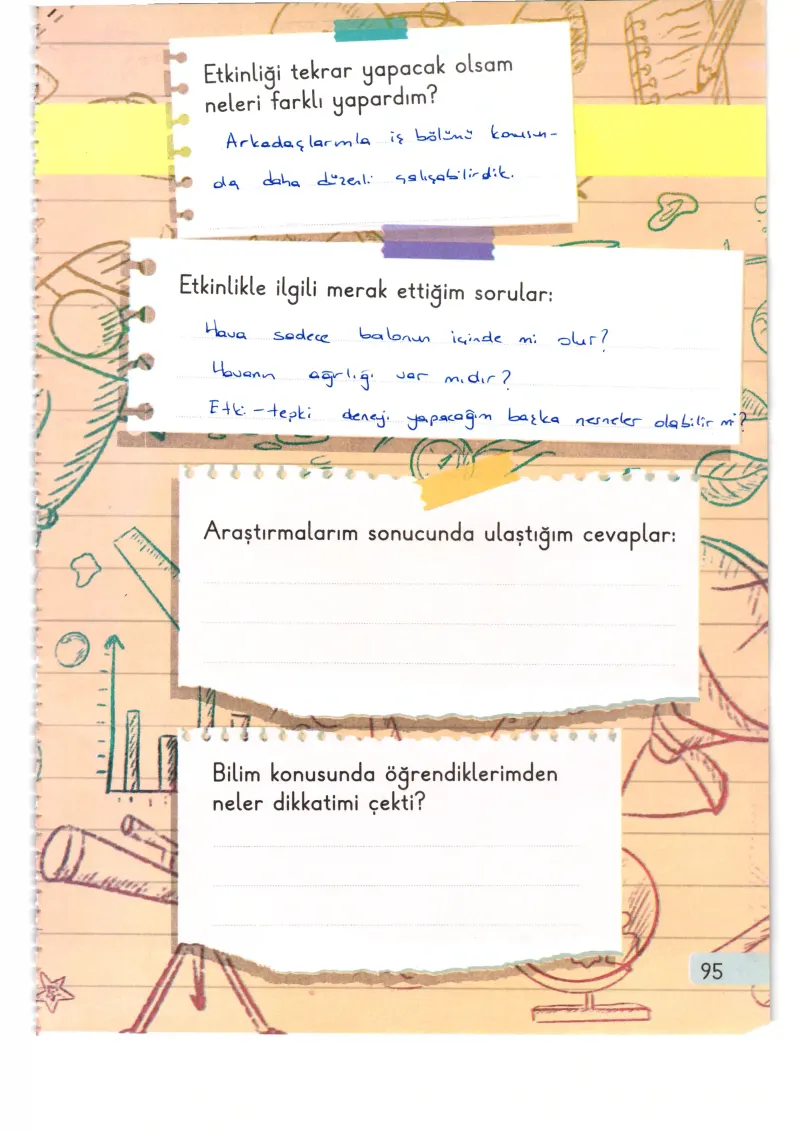 Etkinliği tekrar yapacak olsam
neleri farklı yapardım?
Arkadaşlarımla iş bölümü konusun-
da daha düzenli çalışabilirdik.
Etkinlikle ilgili merak ettiğim sorular:
Hava sadece balonun içinde mi olur?
Havanın ağırlığı var mıdır?
Etki-tepki deneyi yapacağım başka nesneler olabilir mi?
Araştırmalarım sonucunda ulaştığım cevaplar:
Bilim konusunda öğrendiklerimden
neler dikkatimi çekti?
95